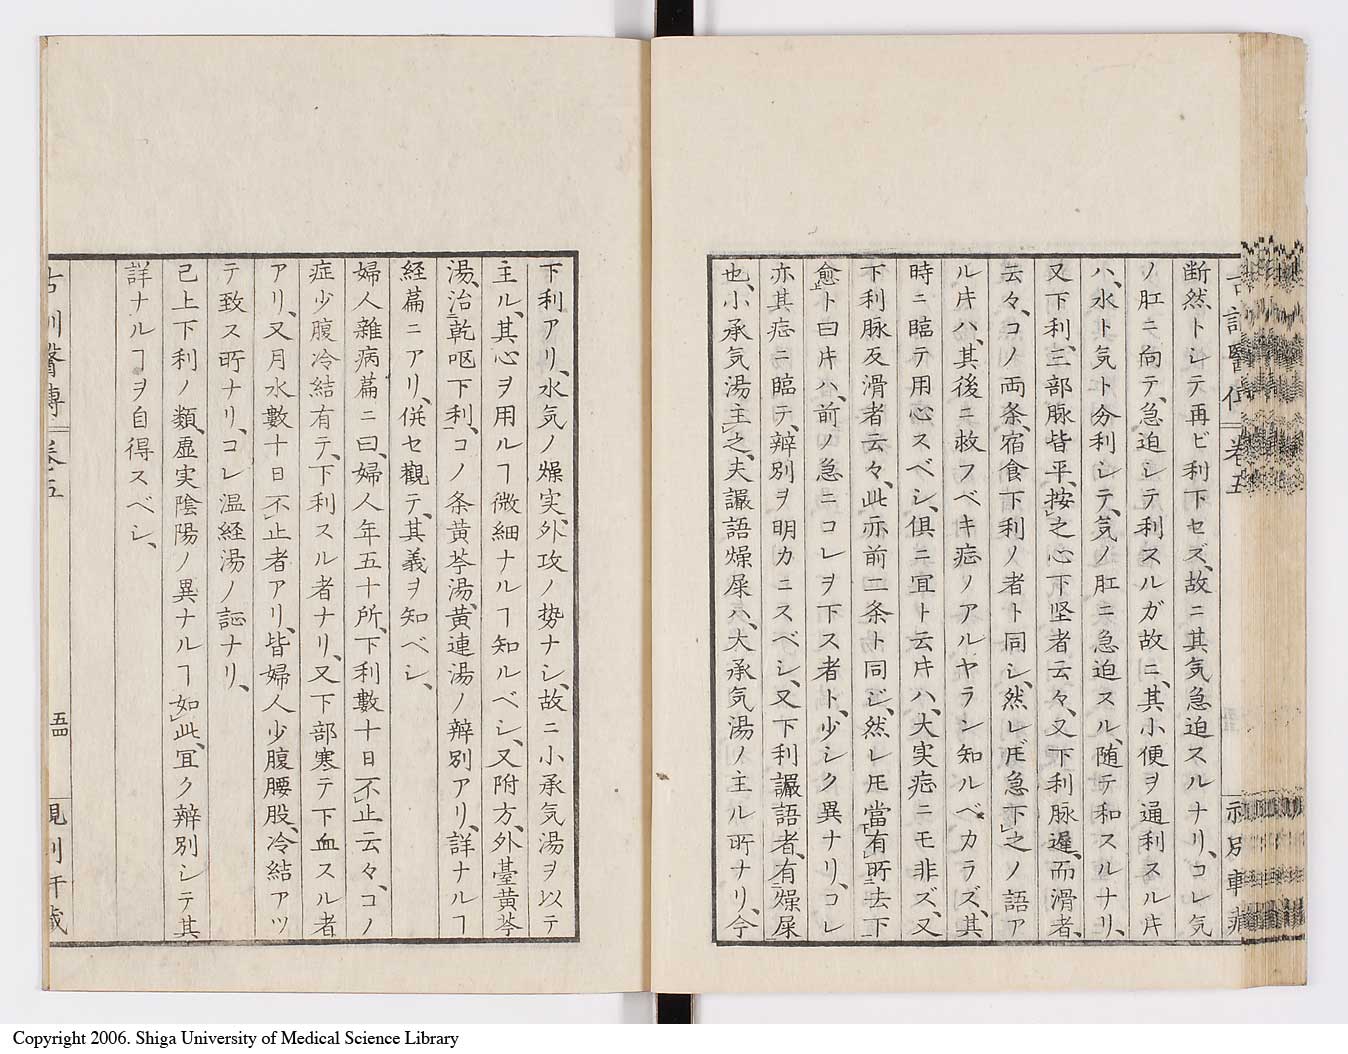 断然トシテ再ビ利下セズ、故ニ其気急迫スルナリ、コレ気
ノ肛ニ向テ、急迫シテ利スルガ故ニ、其小便ヲ通利スル片
ハ、水ト気ト分利シテ、気ノ肛ニ急迫スル、随テ和スルナリ、
又下利、三部脉皆平、按之心下坚者云々、又下利脉遲、而滑者、
云々、コノ両条、宿食下利ノ者ト同シ、然レ𪜈急下之ノ語ア
ル片ハ、其後ニ救フベキ症ノアルヤラン知ルベカラズ、其
時ニ臨テ用心スベシ、俱ニ宜ト云片ハ、大実症ニモ非ズ、又
下利脉反滑者云々、此亦前二条ト同ジ、然レ𪜈當有所去下
愈ト曰片ハ、前ノ急ニコレヲ下ス者ト、少シク異ナリ、コレ
亦其症ニ臨テ、辨別ヲ明カニスベシ、又下利讝語者、有燥屎
也、小承気湯主之、夫讝語燥屎ハ、大承気湯ノ主ル所ナリ、今
下利アリ、水気ノ燥実、外攻ノ势ナシ、故ニ小承気湯ヲ以テ
主ル、其心ヲ用ルヿ微細ナルヿ知ルベシ、又附方、外臺黄芩
湯、治乾呕下利、コノ条黄芩湯、黄連湯ノ辨別アリ、詳ナルヿ
経篇ニアリ、併セ觀テ、其義ヲ知ベシ、
婦人雜病篇ニ曰、婦人年五十所、下利數十日不止云々、コノ
症少腹冷結有テ、下利スル者ナリ、又下部寒テ下血スル者
アリ、又月水數十日不止者アリ、皆婦人少腹腰股、冷結アツ
テ致ス所ナリ、コレ温経湯ノ証ナリ、
己上下利ノ類、虚実陰陽ノ異ナルヿ如此、宜ク辨別シテ其
詳ナルヿヲ自得スベシ、
五四